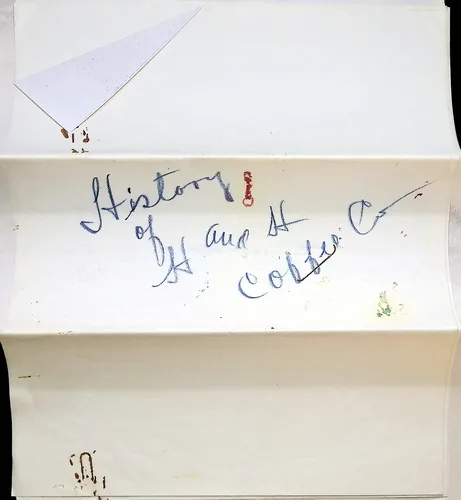 History!
of
H and H
Coffee Co